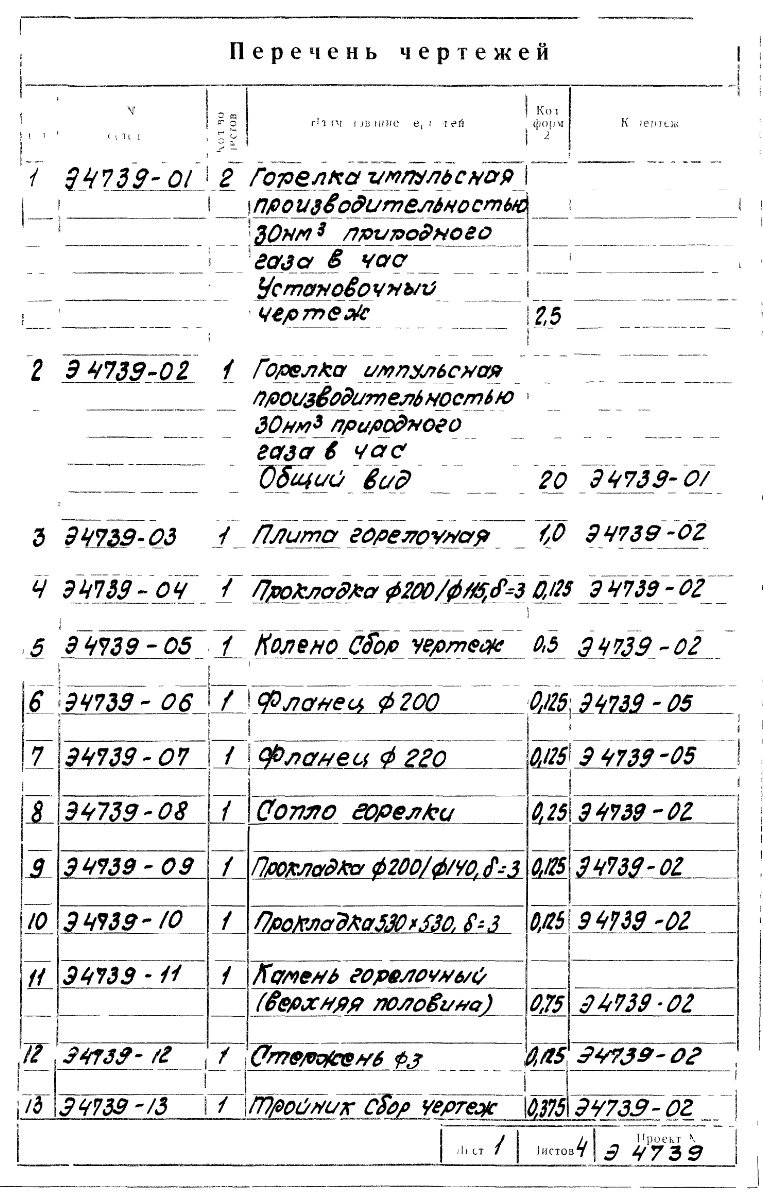 Перечень чертежей
N
Кол-во листов
Кол форм 2
К чертеж
1 Э4739-01 2 Горелка импульсная
производительностью
30нм³ природного
газа в час
Установочный
чертеж 2,5
2 Э4739-02 1 Горелка импульсная
производительностью
30нм³ природного
газа в час
Общий вид 20 Э4739-01
3 Э4739-03 1 Плита горелочная 1,0 Э4739-02
4 Э4739-04 1 Прокладка ф200/ф115, δ=3 0,125 Э4739-02
5 Э4739-05 1 Колено Сбор чертеж 0,5 Э4739-02
6 Э4739-06 1 Фланец ф200 0,125 Э4739-05
7 Э4739-07 1 Фланец ф 220 0,125 Э4739-05
8 Э4739-08 1 Сопло горелки 0,25 Э4739-02
9 Э4739-09 1 Прокладка ф200/ф140, δ=3 0,125 Э4739-02
10 Э4739-10 1 Прокладка 530×530, δ=3 0,125 Э4739-02
11 Э4739-11 1 Камень горелочный
(верхняя половина) 0,75 Э4739-02
12 Э4739-12 1 Стержень ф3 0,125 Э4739-02
13 Э4739-13 1 Тройник Сбор чертеж 0,375 Э4739-02
Лист 1 Листов 4 Проект N
Э 4739